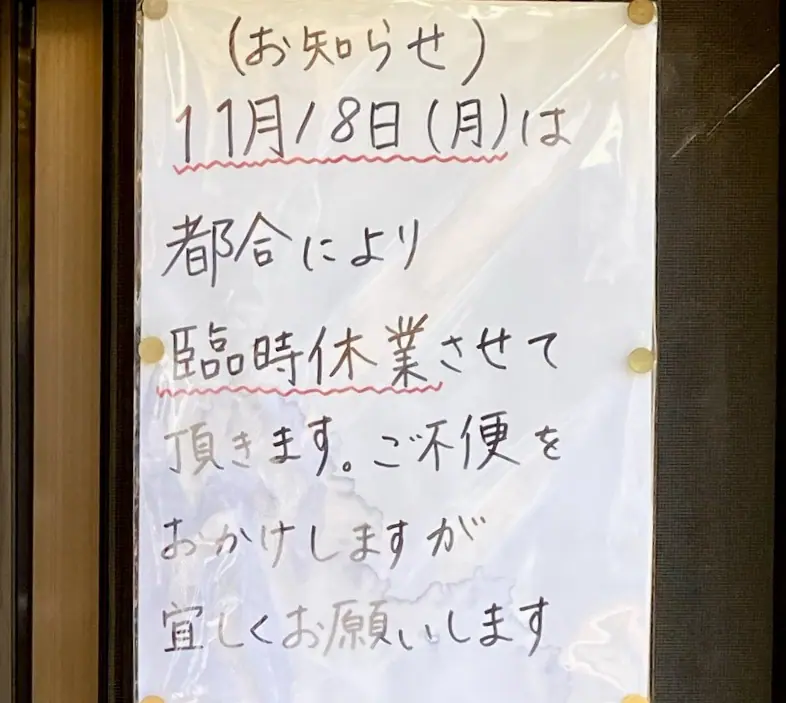 (お知らせ)
11月18日(月)は
都合により
臨時休業させて
頂きます。ご不便を
おかけしますが
宜しくお願いします